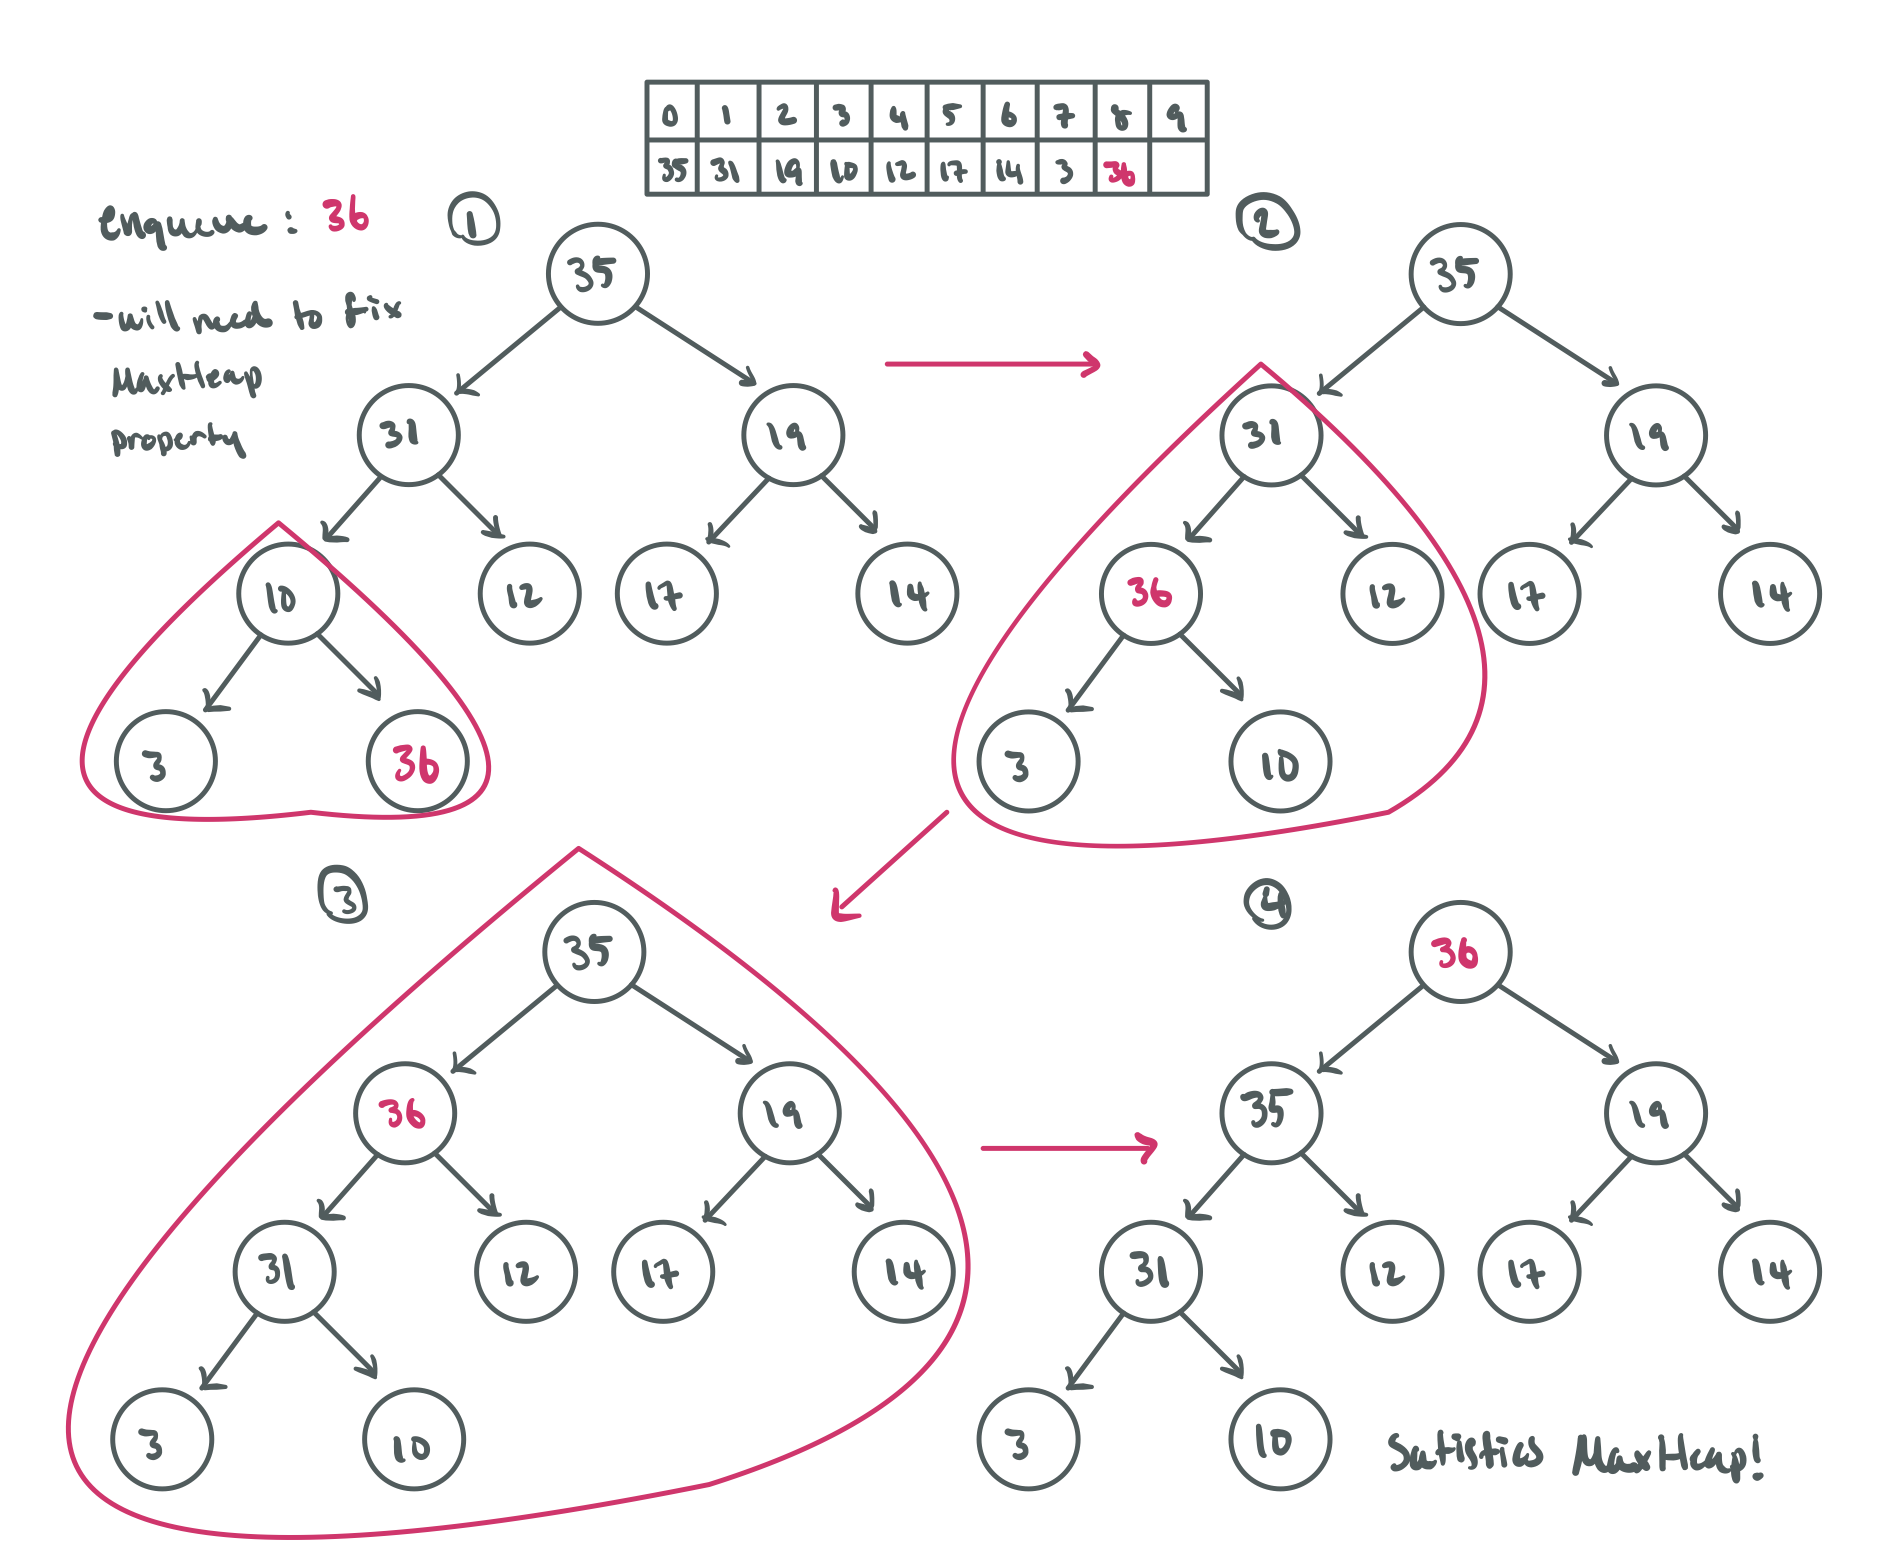 0 1 2 3 4 5 6 7 8 9
35 31 19 10 12 17 14 3 36
enqueue: 36
-will need to fix
MaxHeap
property
1
35
31 19
10 12 17 14
3 36
2
35
31 19
36 12 17 14
3 10
3
35
36 19
31 12 17 14
3 10
4
36
35 19
31 12 17 14
3 10
Satisfies MaxHeap!